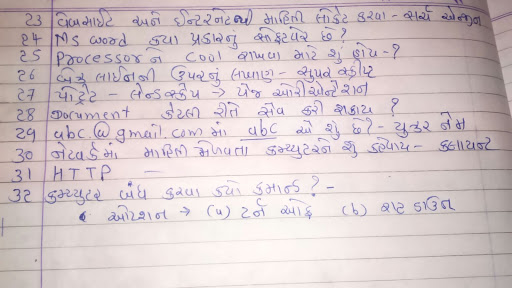 23 વેબસાઈટ અને ઈન્ટરનેટની માહિતી લોકેટ કરવા - સર્ચ એન્જીન
24 MS word કયા પ્રકારનું સોફ્ટવેર છે?
25 Processor ને cool રાખવા માટે શું હોય - ?
26 બેઝ લાઈનની ઉપરનું લખાણ - સુપર સ્ક્રીપ્ટ
27 પોટ્રેટ - લેન્ડસ્કેપ → પેજ ઓરીએન્ટેશન
28 Document કેટલી રીતે સેવ કરી શકાય ?
29 abc@gmail.com માં abc એ શું છે? - યુઝર નેમ
30 નેટવર્કમાં માહિતી મેળવતા કમ્પ્યુટરને શું કહેવાય - કલાયન્ટ
31 HTTP -
32 કમ્પ્યુટર બંધ કરવા કયો કમાન્ડ ? -
ઓપ્શન → (a) ટર્ન ઓફ (b) શટ ડાઉન